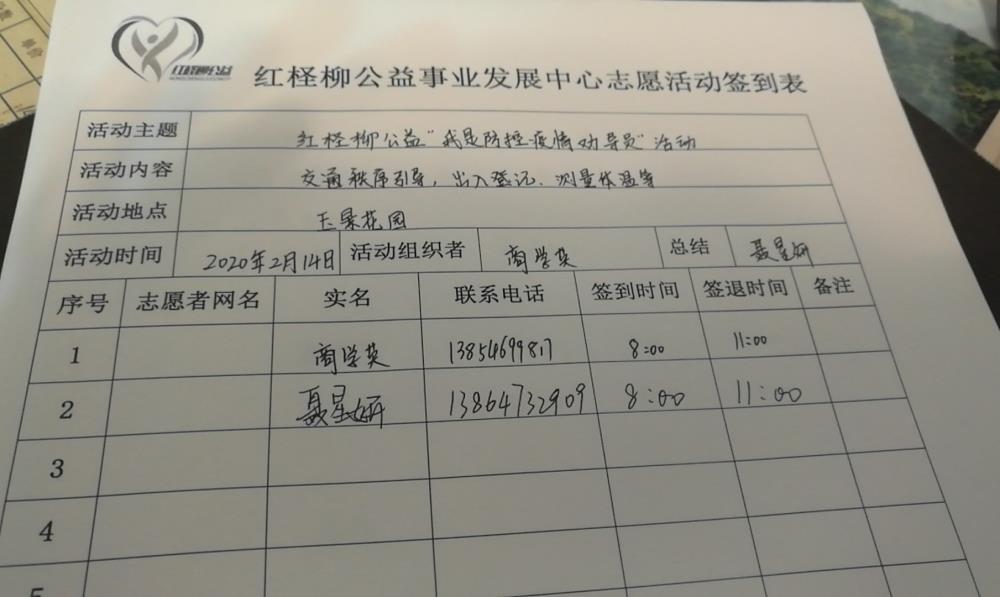 红柽柳公益
红柽柳公益事业发展中心志愿活动签到表
活动主题 红柽柳公益“我是防控疫情劝导员”活动
活动内容 交通秩序引导，出入登记、测量体温等
活动地点 玉景花园
活动时间 2020年2月14日 活动组织者 商学英 总结 聂星妍
序号 志愿者网名 实名 联系电话 签到时间 签退时间 备注
1 商学英 13854699817 8:00 11:00
2 聂星妍 13864732909 8:00 11:00
3
4
5